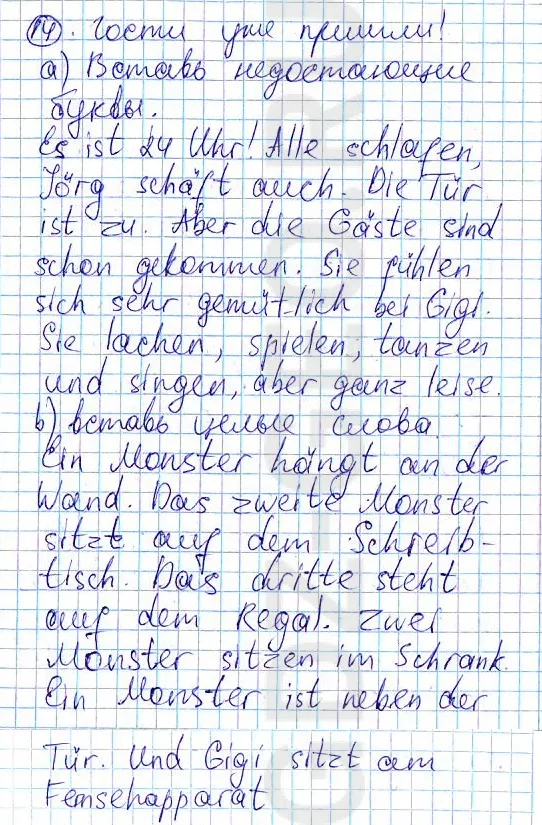 14. Гости уже пришли!
а) Вставь недостающие
буквы.
Es ist 24 Uhr! Alle schlafen,
Jörg schäft auch. Die Tür
ist zu. Aber die Gäste sind
schon gekommen. Sie fühlen
sich sehr gemütlich bei Gigi.
Sie lachen, spielen, tanzen
und singen, aber ganz leise.
b) вставь целые слова.
Ein Monster hängt an der
Wand. Das zweite Monster
sitzt auf dem Schreib-
tisch. Das dritte steht
auf dem Regal. Zwei
Monster sitzen im Schrank.
Ein Monster ist neben der
Tür. Und Gigi sitzt am
Fernsehapparat